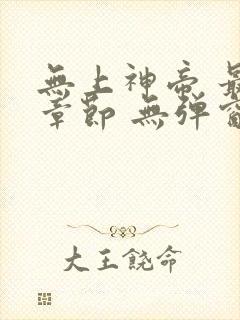 無上神帝 最
章節 無弹窗
大王饒命